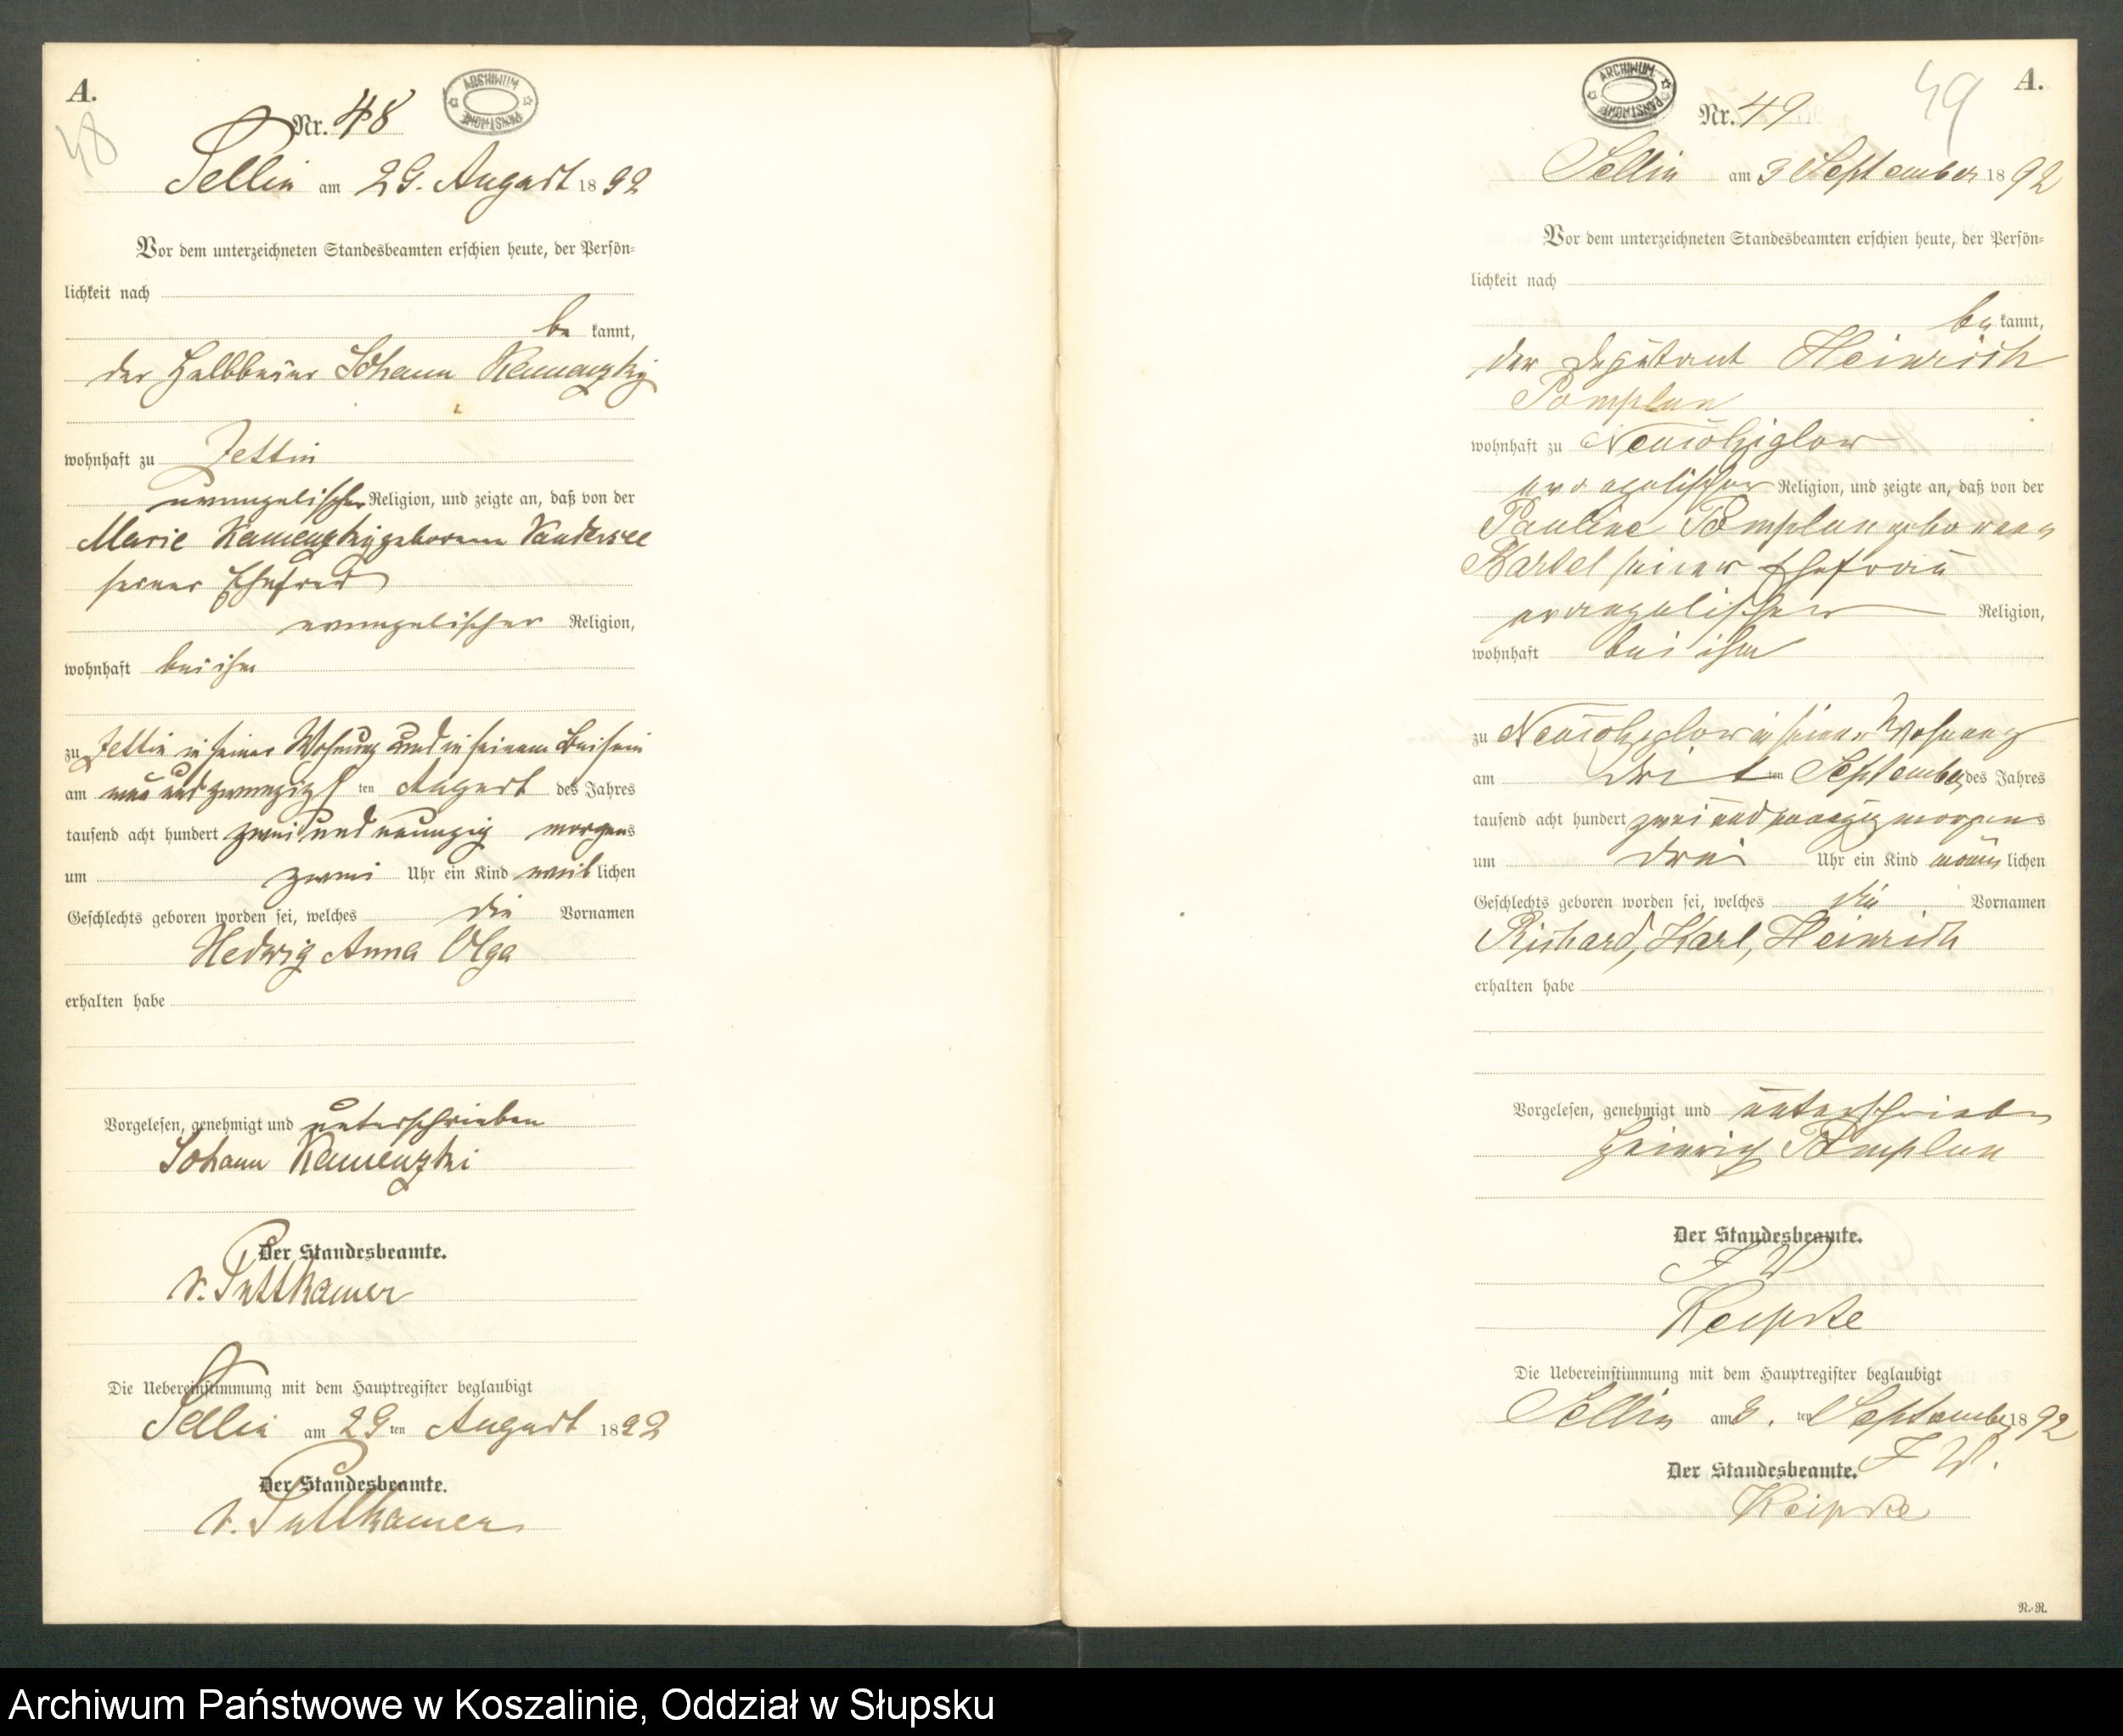 A.
48
Nr. 48
ARCHIWUM PAŃSTWOWE
Sellin am 29. August 1892
Vor dem unterzeichneten Standesbeamten erschien heute, der Persön-
lichkeit nach
be kannt,
der Halbbauer Johann Kamenzky
wohnhaft zu Jettin
evangelischer Religion, und zeigte an, daß von der
Marie Kamenzky geborene Vandersee
seiner Ehefrau
evangelischer Religion,
wohnhaft bei ihm
zu Jettin in seiner Wohnung und in seinem Beisein
am neun und zwanzigsten August des Jahres
tausend acht hundert zwei und neunzig morgens
um zwei Uhr ein Kind weiblichen
Geschlechts geboren worden sei, welches die Vornamen
Hedwig Anna Olga
erhalten habe
Vorgelesen, genehmigt und unterschrieben
Johann Kamenzki
Der Standesbeamte.
v. Puttkamer
Die Uebereinstimmung mit dem Hauptregister beglaubigt
Sellin am 29 ten August 1892
Der Standesbeamte.
v. Puttkamer
A.
49
Nr. 49
ARCHIWUM PAŃSTWOWE
Sellin am 3 September 1892
Vor dem unterzeichneten Standesbeamten erschien heute, der Persön-
lichkeit nach
be kannt,
der Deputant Heinrich
Pomplun
wohnhaft zu
evangelischer Religion, und zeigte an, daß von der
Pauline Pomplun geborene
Bartel seiner Ehefrau
evangelischer Religion,
wohnhaft bei ihm
zu in seiner Wohnung
am drit ten September des Jahres
tausend acht hundert zwei und neunzig morgens
um drei Uhr ein Kind männlichen
Geschlechts geboren worden sei, welches die Vornamen
Richard, Karl, Heinrich
erhalten habe
Vorgelesen, genehmigt und unterschrieben
Heinrich Pomplun
Der Standesbeamte.
I W
Die Uebereinstimmung mit dem Hauptregister beglaubigt
Sellin am 3. ten September 1892
Der Standesbeamte. I W.
R.-R.
Archiwum Państwowe w Koszalinie, Oddział w Słupsku